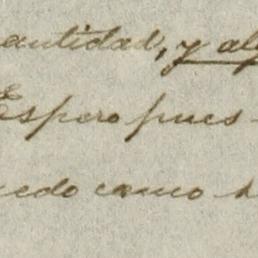 antidad, y al
Espero pues
edo como